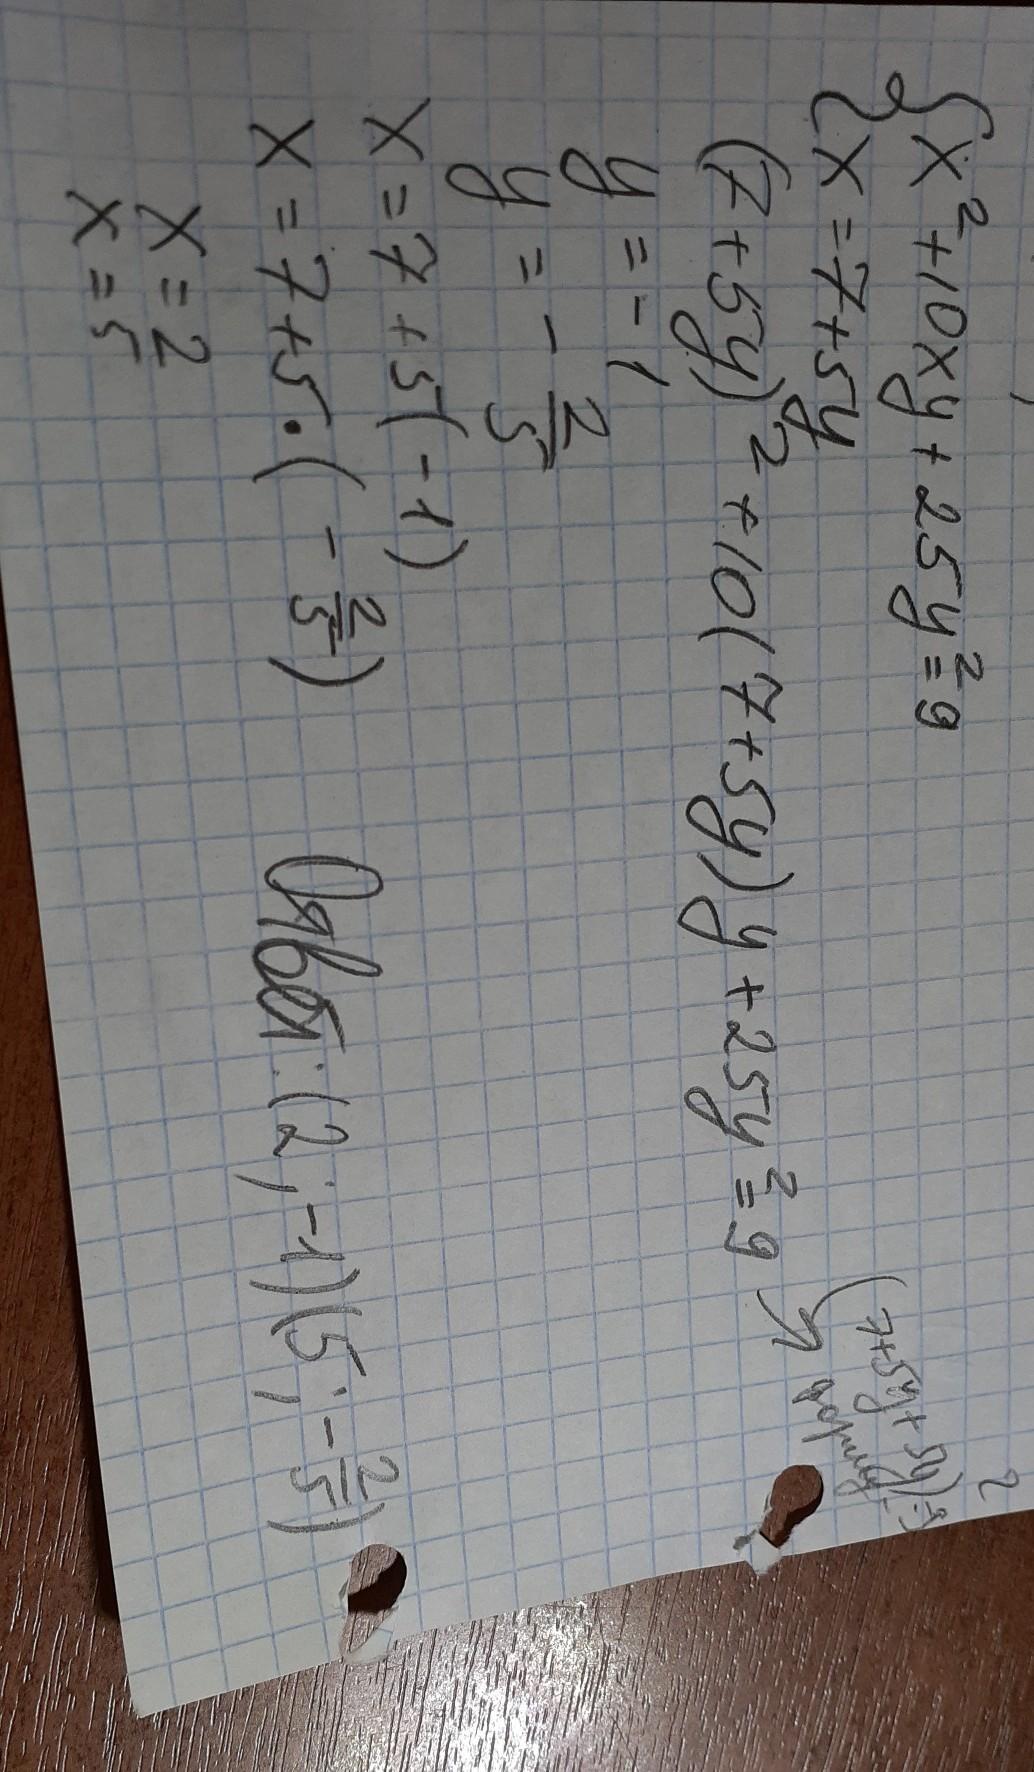 {x² + 10xy + 25y² = 9
{x = 7 + 5y
(7 + 5y)² + 10(7 + 5y)y + 25y² = 9
(7+5y+5y)²=9
формула
y = -1
y = -2/5
x = 7 + 5(-1)
x = 7 + 5·(-2/5)
x = 2
x = 5
Ответ: (2; -1)(5; -2/5)